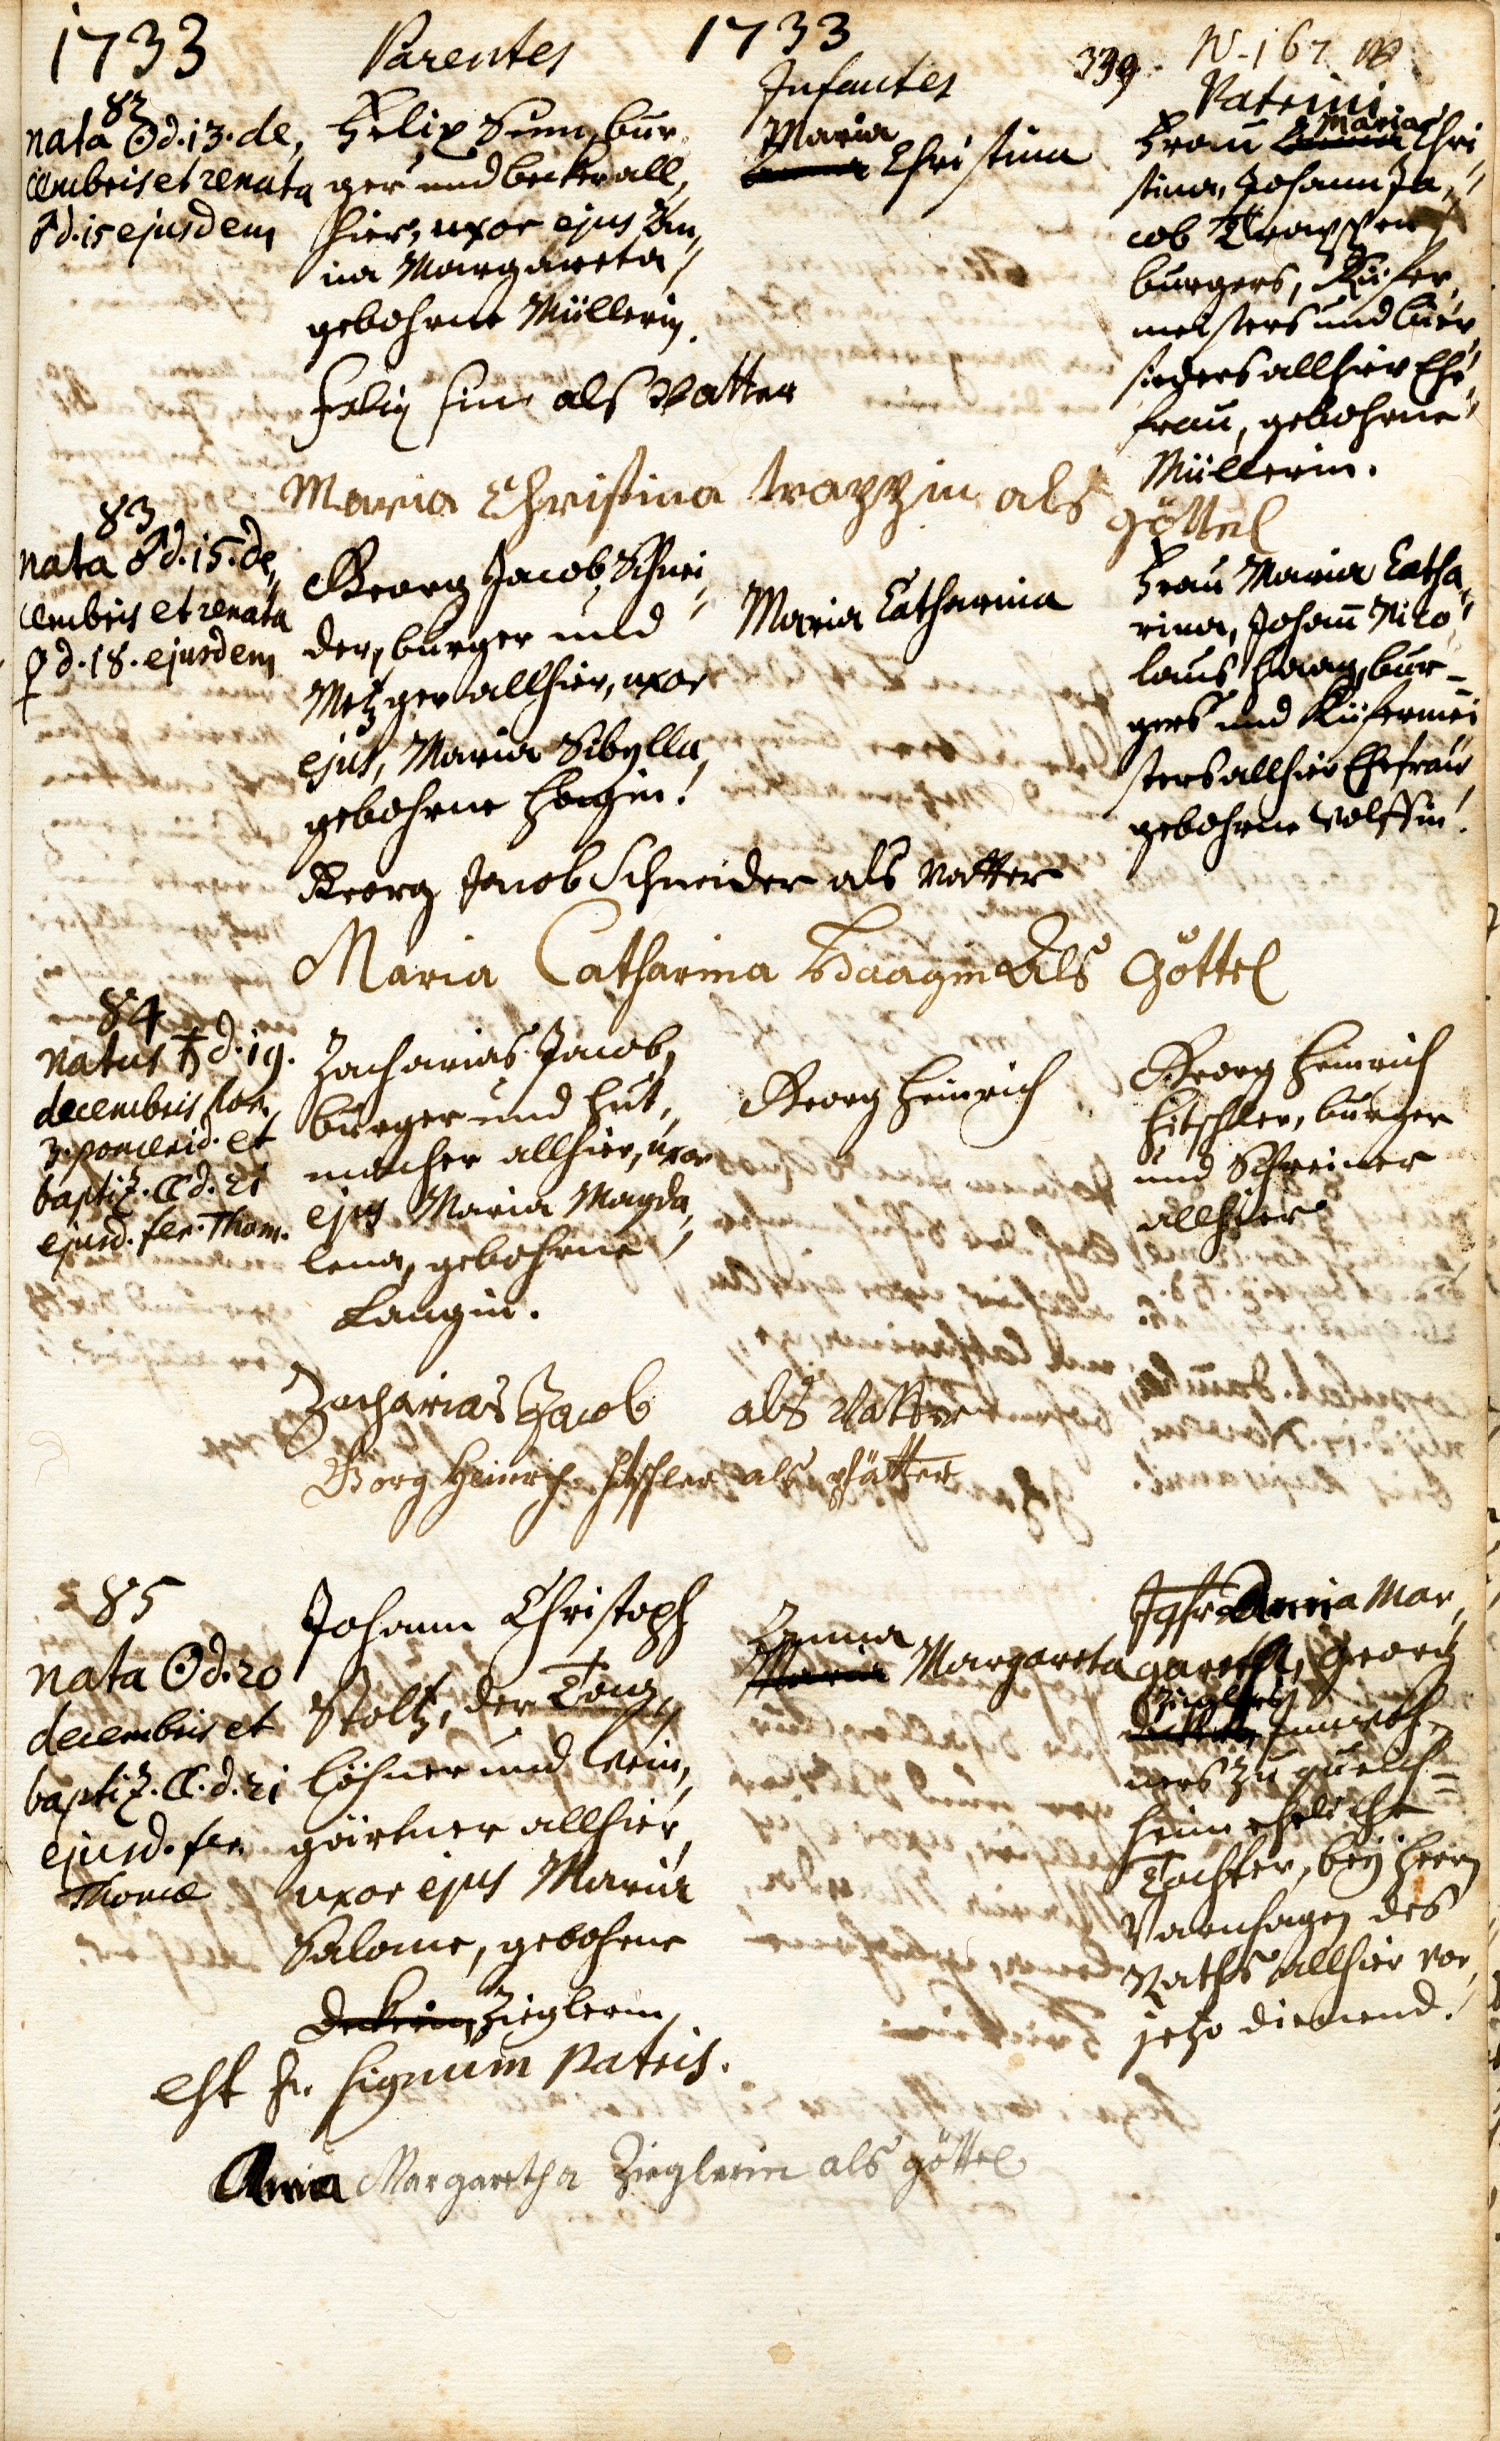 1733
Parentes
1733
Infantes
339. N. 167
Patrini
82
nata ☉ d. 13. de,
cembris et renata
♂ d. 15 ejusdem
Felix Sinn, bur,
ger und becker all,
hier, uxor ejus An,
na Margareta,
gebohrne Müllerin.
Maria
Christina
Maria
Frau Chri
stina, Johann Ja,
cob Trappen
burgers, Küfer,
meisters und bier
sieders allhier Ehe,
frau, gebohrne
Müllerin.
Felix Sinn als Vatter
Maria Christina trappin als Göttel
83
nata ♂ d. 15. de,
cembris et renata
♀ d. 18. ejusdem
Georg Jacob Schnei,
der, burger und
Metzger allhier, uxor
ejus, Maria Sibylla,
gebohrne Hagin.
Maria Catharina
Frau Maria Catha,
rina, Johann Nico
laus Haag, bur-
gers und Küfermei
sters allhier Ehefrau,
gebohrne Wolffin.
Georg Jacob Schneider als Vatter
Maria Catharina Haagin Als Göttel
84
natus ♄ d. 19.
decembris hor.
3. pomerid. et
baptiz. ☾ d. 21
ejusd. fer. Thom.
Zacharias Jacob,
burger und Hut,
macher allhier, uxor
ejus Maria Magda,
lena, gebohrne
Langin.
Georg Heinrich
Georg Heinrich
Hitschler, burger
und Schreiner
allhier
Zacharias Jacob als Vatter
Görg Heinrich Hitschler als pfätter
85
nata ☉ d. 20
decembris et
baptiz. ☾. d. 21
ejusd. fer.
Thomæ
Johann Christoph
Stoltz, der Tag,
löhner und Wein,
gärtner allhier,
uxor ejus Maria
Salome, gebohrne
Zieglerin,
Anna
Margareta
Jgfr. Anna Mar,
garetha, Georg
Zieglers
Innwoh,
ners zu
heim eheliche
Tochter, bey Herrn
Varnhagen des
Raths allhier vor
jetzo dienend.
est signum Patris.
Anna Margaretha Zieglerin als göttel